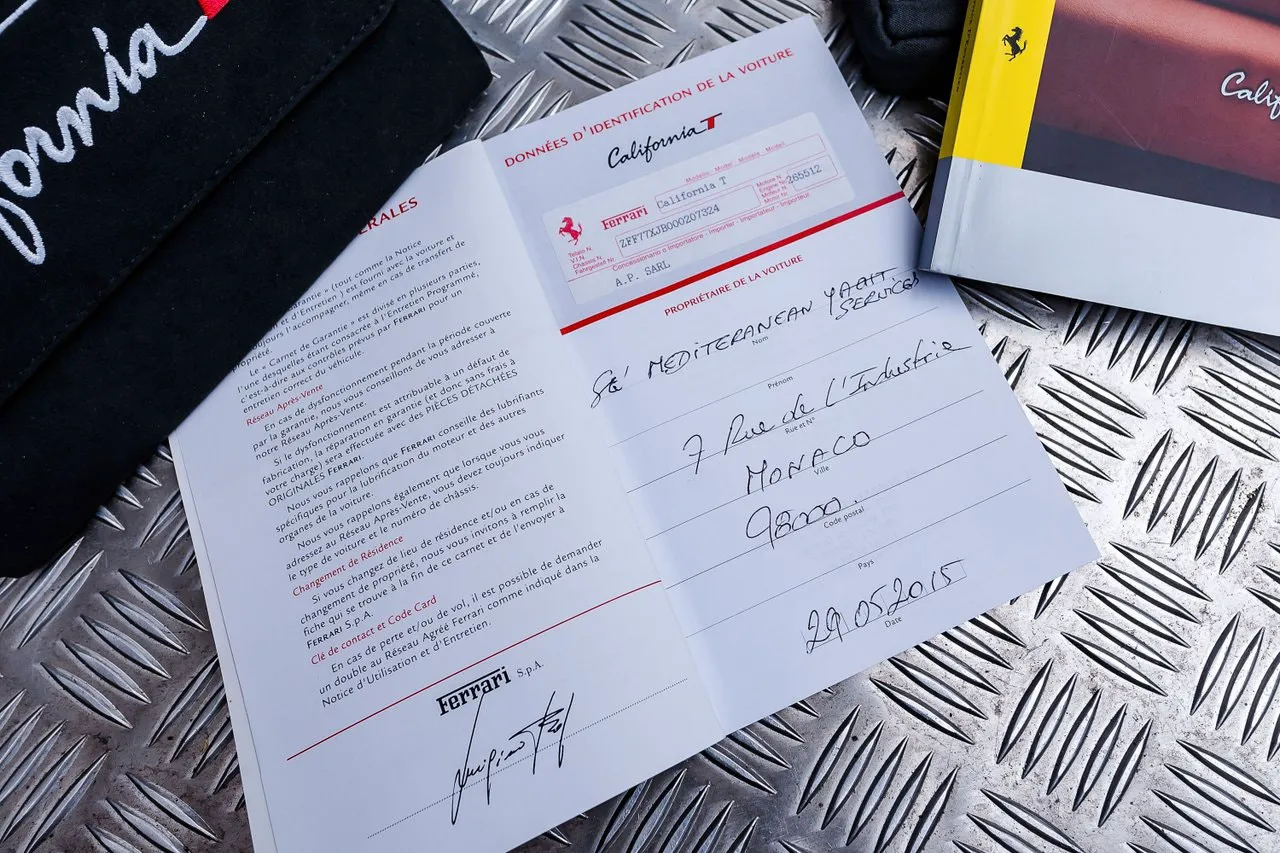 fornia
ÉRALES
arantie » (tout comme la Notice
et d'Entretien ) est fourni avec la voiture et
jours l'accompagner même en cas de transfert de
propriété.
Le « Carnet de Garantie » est divisé en plusieurs parties,
l'une desquelles étant consacrée à l'Entretien Programmé,
c'est-à-dire aux contrôles prévus par FERRARI pour un
entretien correct du véhicule.
Réseau Après-Vente
En cas de dysfonctionnement pendant la période couverte
par la garantie, nous vous conseillons de vous adresser à
notre Réseau Après-Vente.
Si le dysfonctionnement est attribuable à un défaut de
fabrication, la réparation en garantie (et donc sans frais à
votre charge) sera effectuée avec des PIÈCES DÉTACHÉES
ORIGINALES FERRARI.
Nous vous rappelons que FERRARI conseille des lubrifiants
spécifiques pour la lubrification du moteur et des autres
organes de la voiture.
Nous vous rappelons également que lorsque vous vous
adressez au Réseau Après-Vente, vous devez toujours indiquer
le type de voiture et le numéro de châssis.
Changement de Résidence
Si vous changez de lieu de résidence et/ou en cas de
changement de propriété, nous vous invitons à remplir la
fiche qui se trouve à la fin de ce carnet et de l'envoyer à
FERRARI S.p.A.
Clé de contact et Code Card
En cas de perte et/ou de vol, il est possible de demander
un double au Réseau Agréé Ferrari comme indiqué dans la
Notice d'Utilisation et d'Entretien.
Ferrari S.p.A.
DONNÉES D'IDENTIFICATION DE LA VOITURE
California T
Modello - Model - Modèle - Modell
Ferrari California T
Motore N.
Engine N.
Moteur N.
Motor Nr.
265512
Telaio N.
V.I.N.
Châssis N.
Fahrgestell Nr.
ZFF77XJB000207324
Concessionario o Importatore - Importer - Importateur - Importeur
A.P. SARL
PROPRIÉTAIRE DE LA VOITURE
MEDITERANEAN YACHT
SERVICES
Nom
Prénom
7 Rue de l'Industrie
Rue et N°
MONACO
Ville
98000.
Code postal
Pays
29.05.2015
Date
Calif